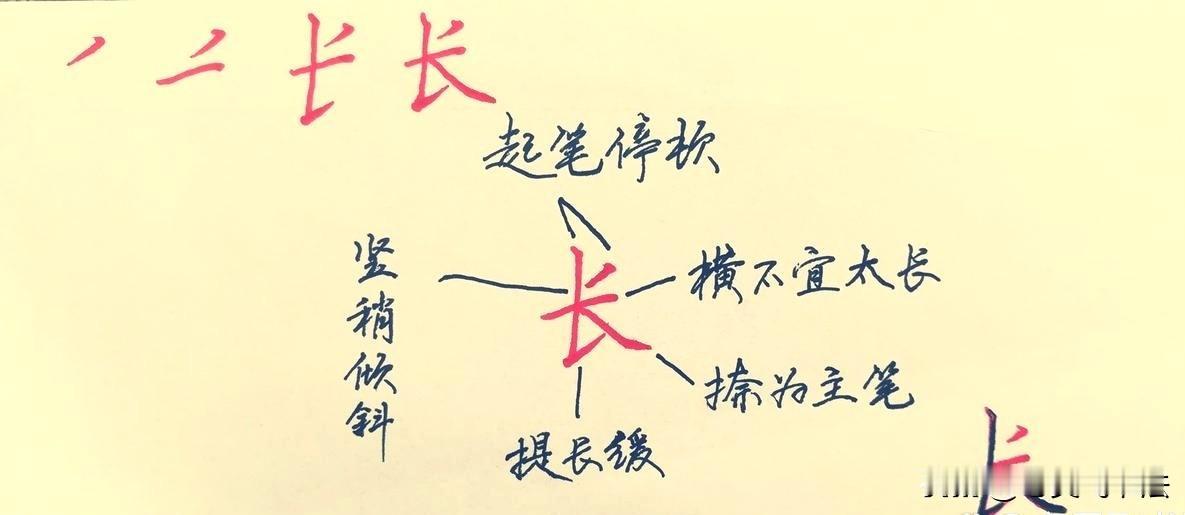 长
起笔停顿
竖稍倾斜
长
横不宜太长
捺为主笔
提长缓
长